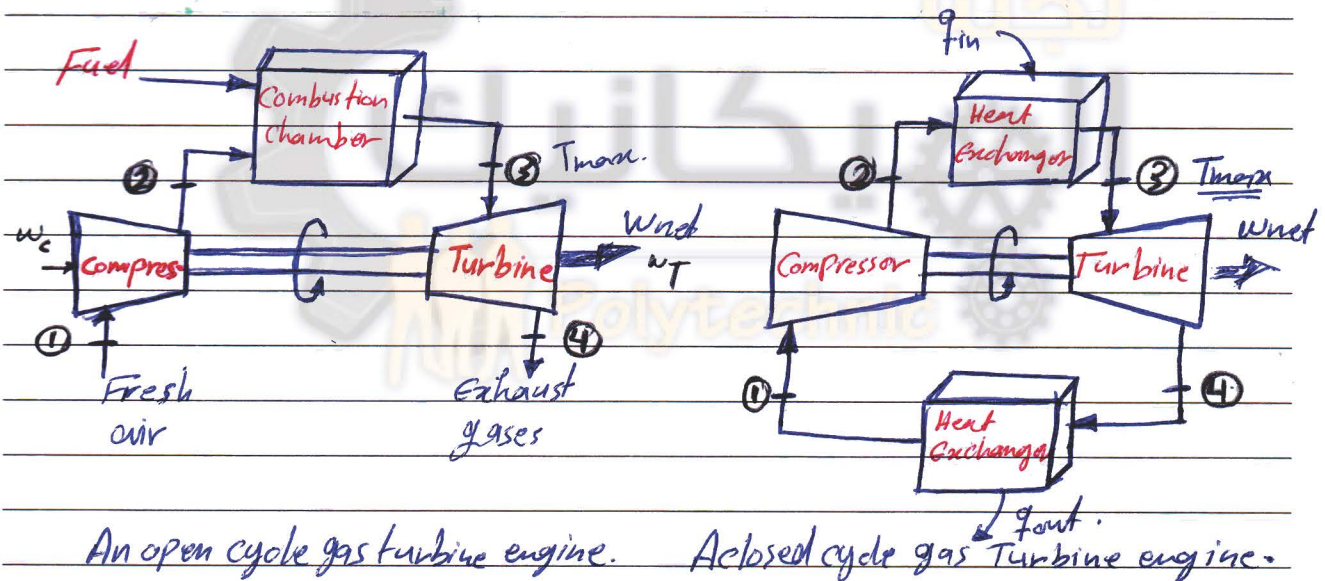 Fuel
Combustion
Chamber
②
③ Tmax.
Wc
Compres
Turbine
Wnet
WT
①
④
Fresh
air
Exhaust
gases
An open cycle gas turbine engine.
qin
Heat
Exchanger
②
③ Tmax
Compressor
Turbine
Wnet
①
④
Heat
Exchanger
qout.
A closed cycle gas Turbine engine.
الميكانيك
Polytechnic